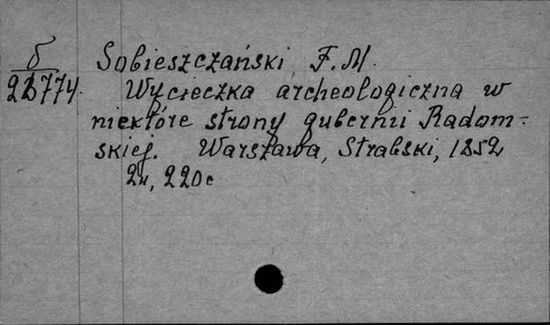 б
23774.
Sobieszczański, F. M.
Wycieczka archeologiczna w
niektóre strony gubernii Radom-
skiej. Warszawa, Strabski, 1852
2н, 220с